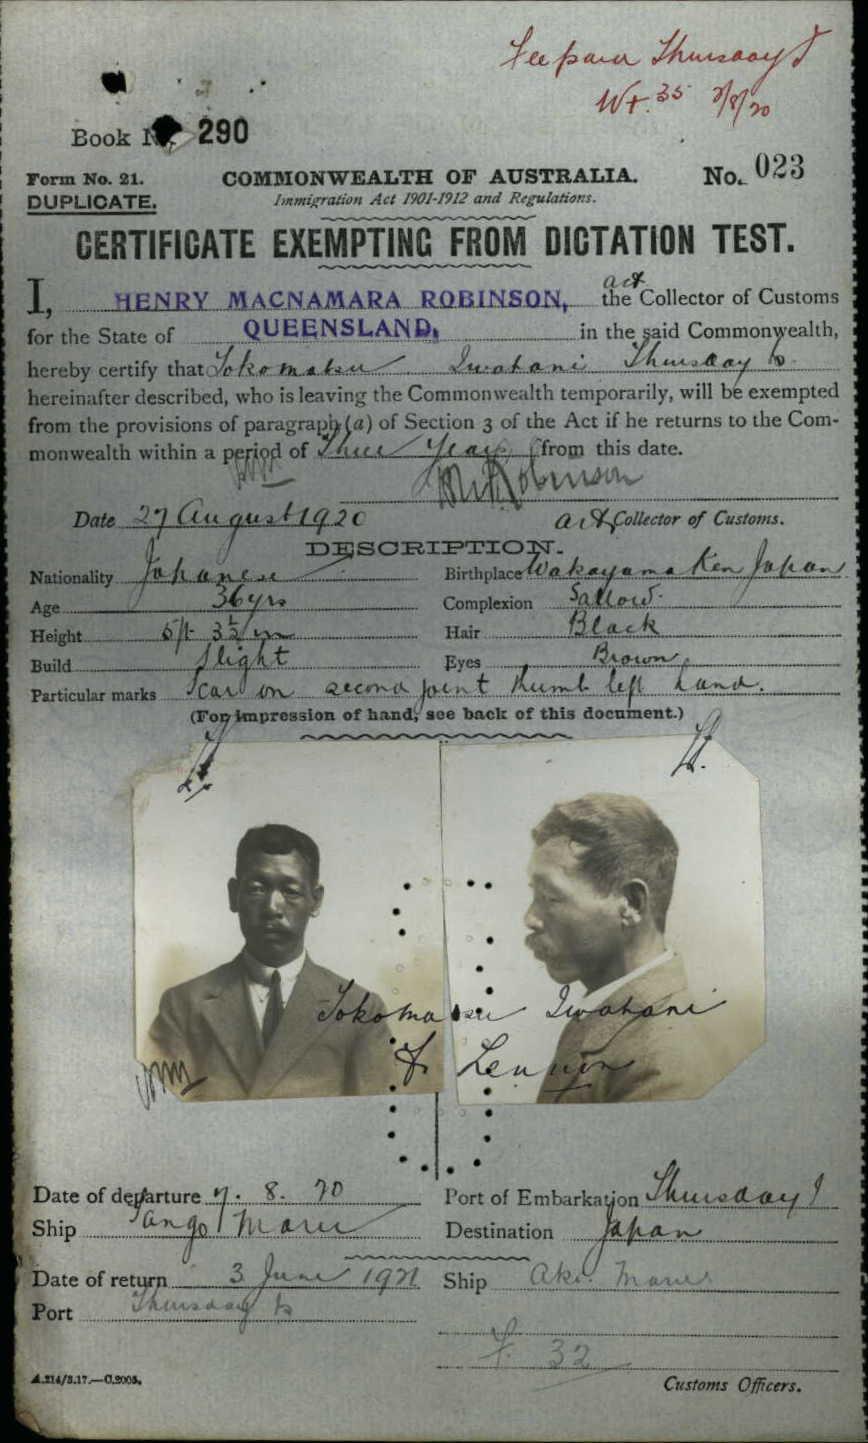 Fee paid Thursday I
Wt. 35 7/8/20
Book No. 290
Form No. 21.
COMMONWEALTH OF AUSTRALIA.
No. 023
DUPLICATE.
Immigration Act 1901-1912 and Regulations.
CERTIFICATE EXEMPTING FROM DICTATION TEST.
I, HENRY MACNAMARA ROBINSON, act the Collector of Customs
for the State of QUEENSLAND, in the said Commonwealth,
hereby certify that Tokomatsu Iwatani Thursday Is
hereinafter described, who is leaving the Commonwealth temporarily, will be exempted
from the provisions of paragraph (a) of Section 3 of the Act if he returns to the Com-
monwealth within a period of Three Years from this date.
HMRobinson
Date 27 August 1920 act Collector of Customs.
DESCRIPTION.
Nationality Japanese Birthplace Wakayama Ken Japan
Age 36 yrs Complexion Sallow.
Height 5ft 3½ in Hair Black
Build Slight Eyes Brown
Particular marks Scar on second joint thumb left hand.
(For impression of hand, see back of this document.)
Tokomatsu Iwatani
F Lennon
Date of departure 7. 8. 20 Port of Embarkation Thursday I
Ship Tango Maru Destination Japan
Date of return 3 June 1921 Ship Aki Maru
Port Thursday Is
F. 32
A.214/3.17.—C.2005.
Customs Officers.